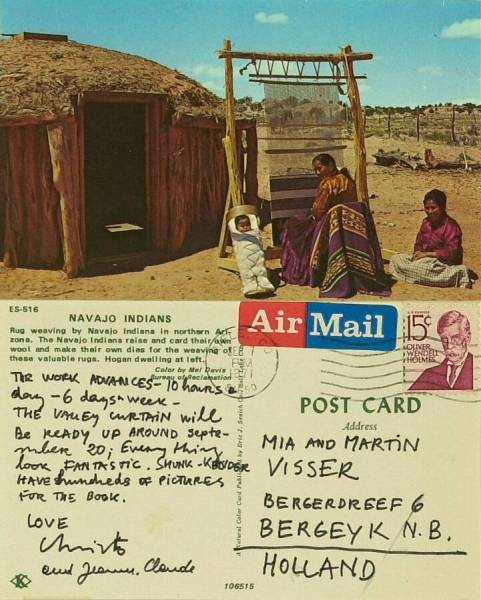 ES-516
NAVAJO INDIANS
Rug weaving by Navajo Indians in northern Ari-
zona. The Navajo Indians raise and card their own
wool and make their own dies for the weaving of
these valuable rugs. Hogan dwelling at left.
Color by Mel Davis
Bureau of Reclamation
THE WORK ADVANCES - 10 hours a
day - 6 days a week -
THE VALLEY CURTAIN will
Be READY UP AROUND septe-
mber 20; Every thing
look FANTASTIC. SHUNK-KENDER
HAVE hundreds of PICTURES
FOR THE BOOK.
LOVE
Christo
and Jeanne-Claude
A Natural Color Card Published by Eric J. Seaich Co., Salt Lake
K
106515
Air Mail
15¢
OLIVER
WENDELL
HOLMES
POST CARD
Address
MIA AND MARTIN
VISSER
BERGERDREEF 6
BERGEYK N.B.
HOLLAND